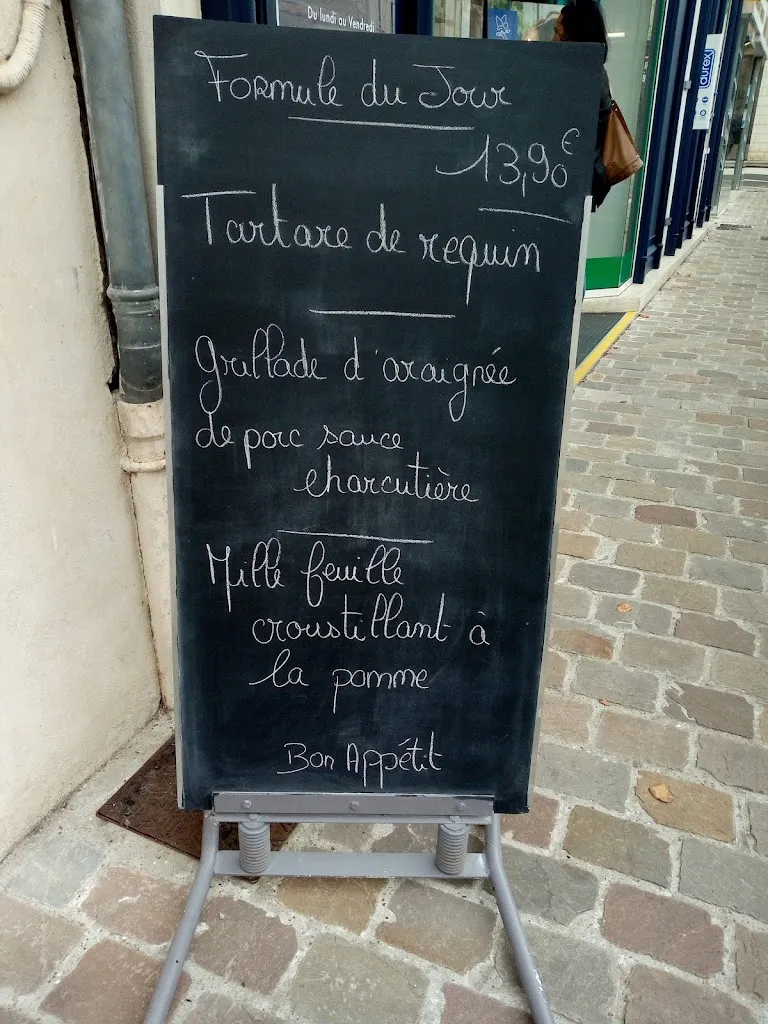 Du lundi au Vendredi
Formule du Jour
13,90€
Tartare de requin
Grillade d'araignée
de porc sauce
charcutière
Mille feuille
croustillant à
la pomme
Bon Appétit
durex